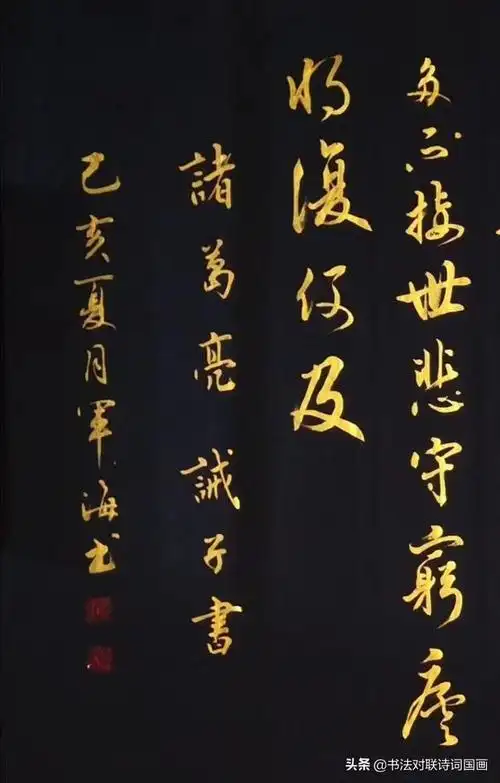 多不接世悲守窮廬
将復何及
諸葛亮誡子書
己亥夏月軍海书
头条@书法对联诗词国画